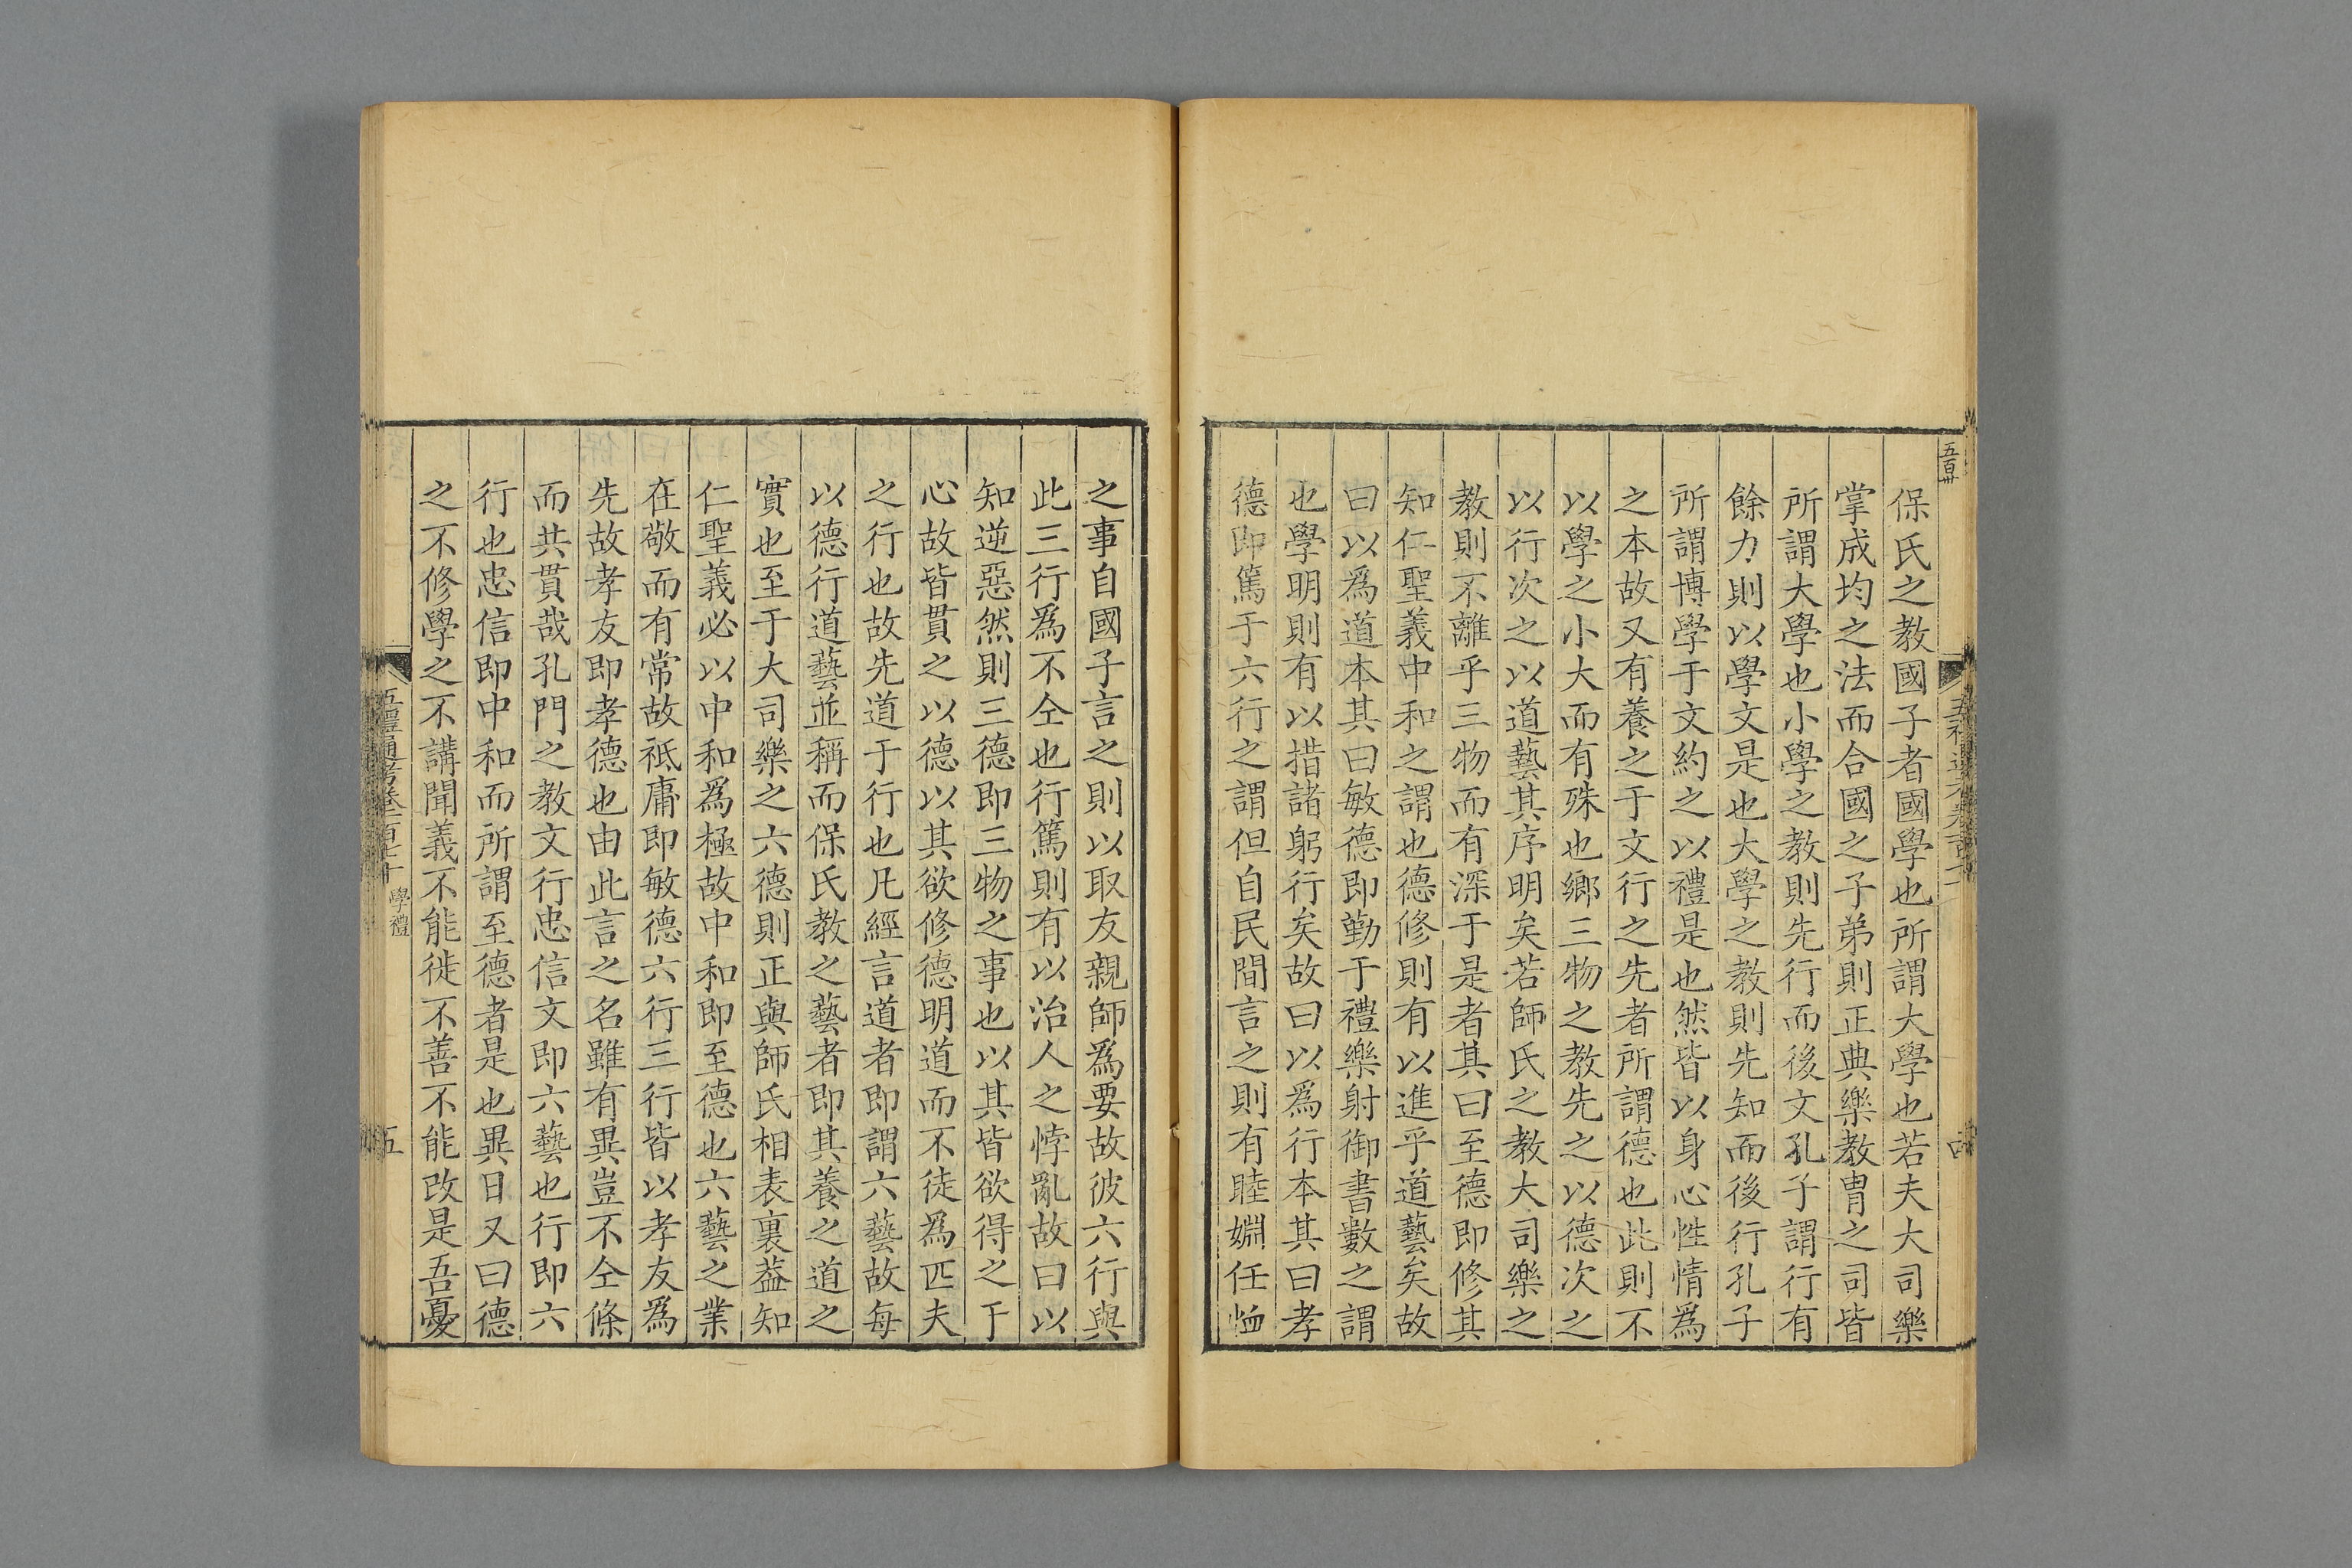 保氏之教國子者國學也所謂大學也若夫大司樂
掌成均之法而合國之子弟則正典樂教冑之司皆
所謂大學也小學之教則先行而後文孔子謂行有
餘力則以學文是也大學之教則先知而後行孔子
所謂博學于文約之以禮是也然皆以身心性情為
之本故又有養之于文行之先者所謂德也此則不
以學之小大而有殊也鄉三物之教先之以德次之
以行次之以道藝其序明矣若師氏之教大司樂之
教則不離乎三物而有深于是者其曰至德即修其
知仁聖義中和之謂也德修則有以進乎道藝矣故
曰以爲道本其曰敏德即勤于禮樂射御書數之謂
也學明則有以措諸躬行矣故曰以爲行本其曰孝
德即篤于六行之謂但自民間言之則有睦婣任恤
之事自國子言之則以取友親師爲要故彼六行與
此三行爲不仝也行篤則有以治人之悖亂故曰以
知逆惡然則三德即三物之事也以其皆欲得之于
心故皆貫之以德以其欲修德明道而不徒爲匹夫
之行也故先道于行也凡經言道者即謂六藝故每
以德行道藝並稱而保氏教之藝者即其養之道之
實也至于大司樂之六德則正與師氏相表裏葢知
仁聖義必以中和爲極故中和即至德也六藝之業
在敬而有常故祗庸即敏德六行三行皆以孝友爲
先故孝友即孝德也由此言之名雖有異豈不仝條
而共貫哉孔門之教文行忠信文即六藝也行即六
行也忠信即中和而所謂至德者是也異日又曰德
之不修學之不講聞義不能徙不善不能改是吾憂
五禮通考卷一百七十
學禮
五